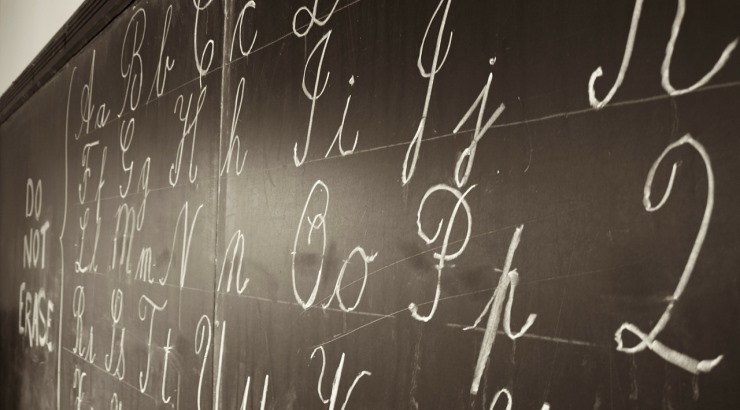 DO
NOT
ERASE
Aa Bb Cc
Ff Gg Hh Ii Jj K
Ll Mm Nn Oo Pp Q
Rr Ss Tt U